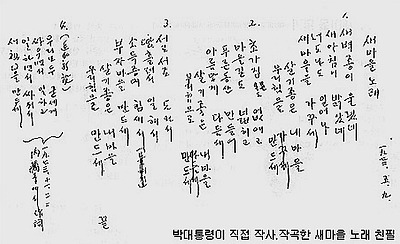 새마을 노래
1. 새벽종이 울렸네
새아침이 밝았네
너도나도 일어나
새마을을 가꾸세
살기좋은 내마을
우리힘으로 만드세
2. 초가집도 없애고
마을길도 넓히고
푸른동산 만들어
아름답게 다듬세
살기좋은 내마을
우리힘으로 만드세
3. 서로서로 도와서
땀흘려서 일해서
소득증대 힘써서
부자마을 만드세
살기좋은 내마을
우리힘으로 만드세
끝
4.
우리모두 굳세게
싸우면서 일하고
일하면서 싸워서
새조국을 만드세
박대통령이 직접 작사.작곡한 새마을 노래 친필